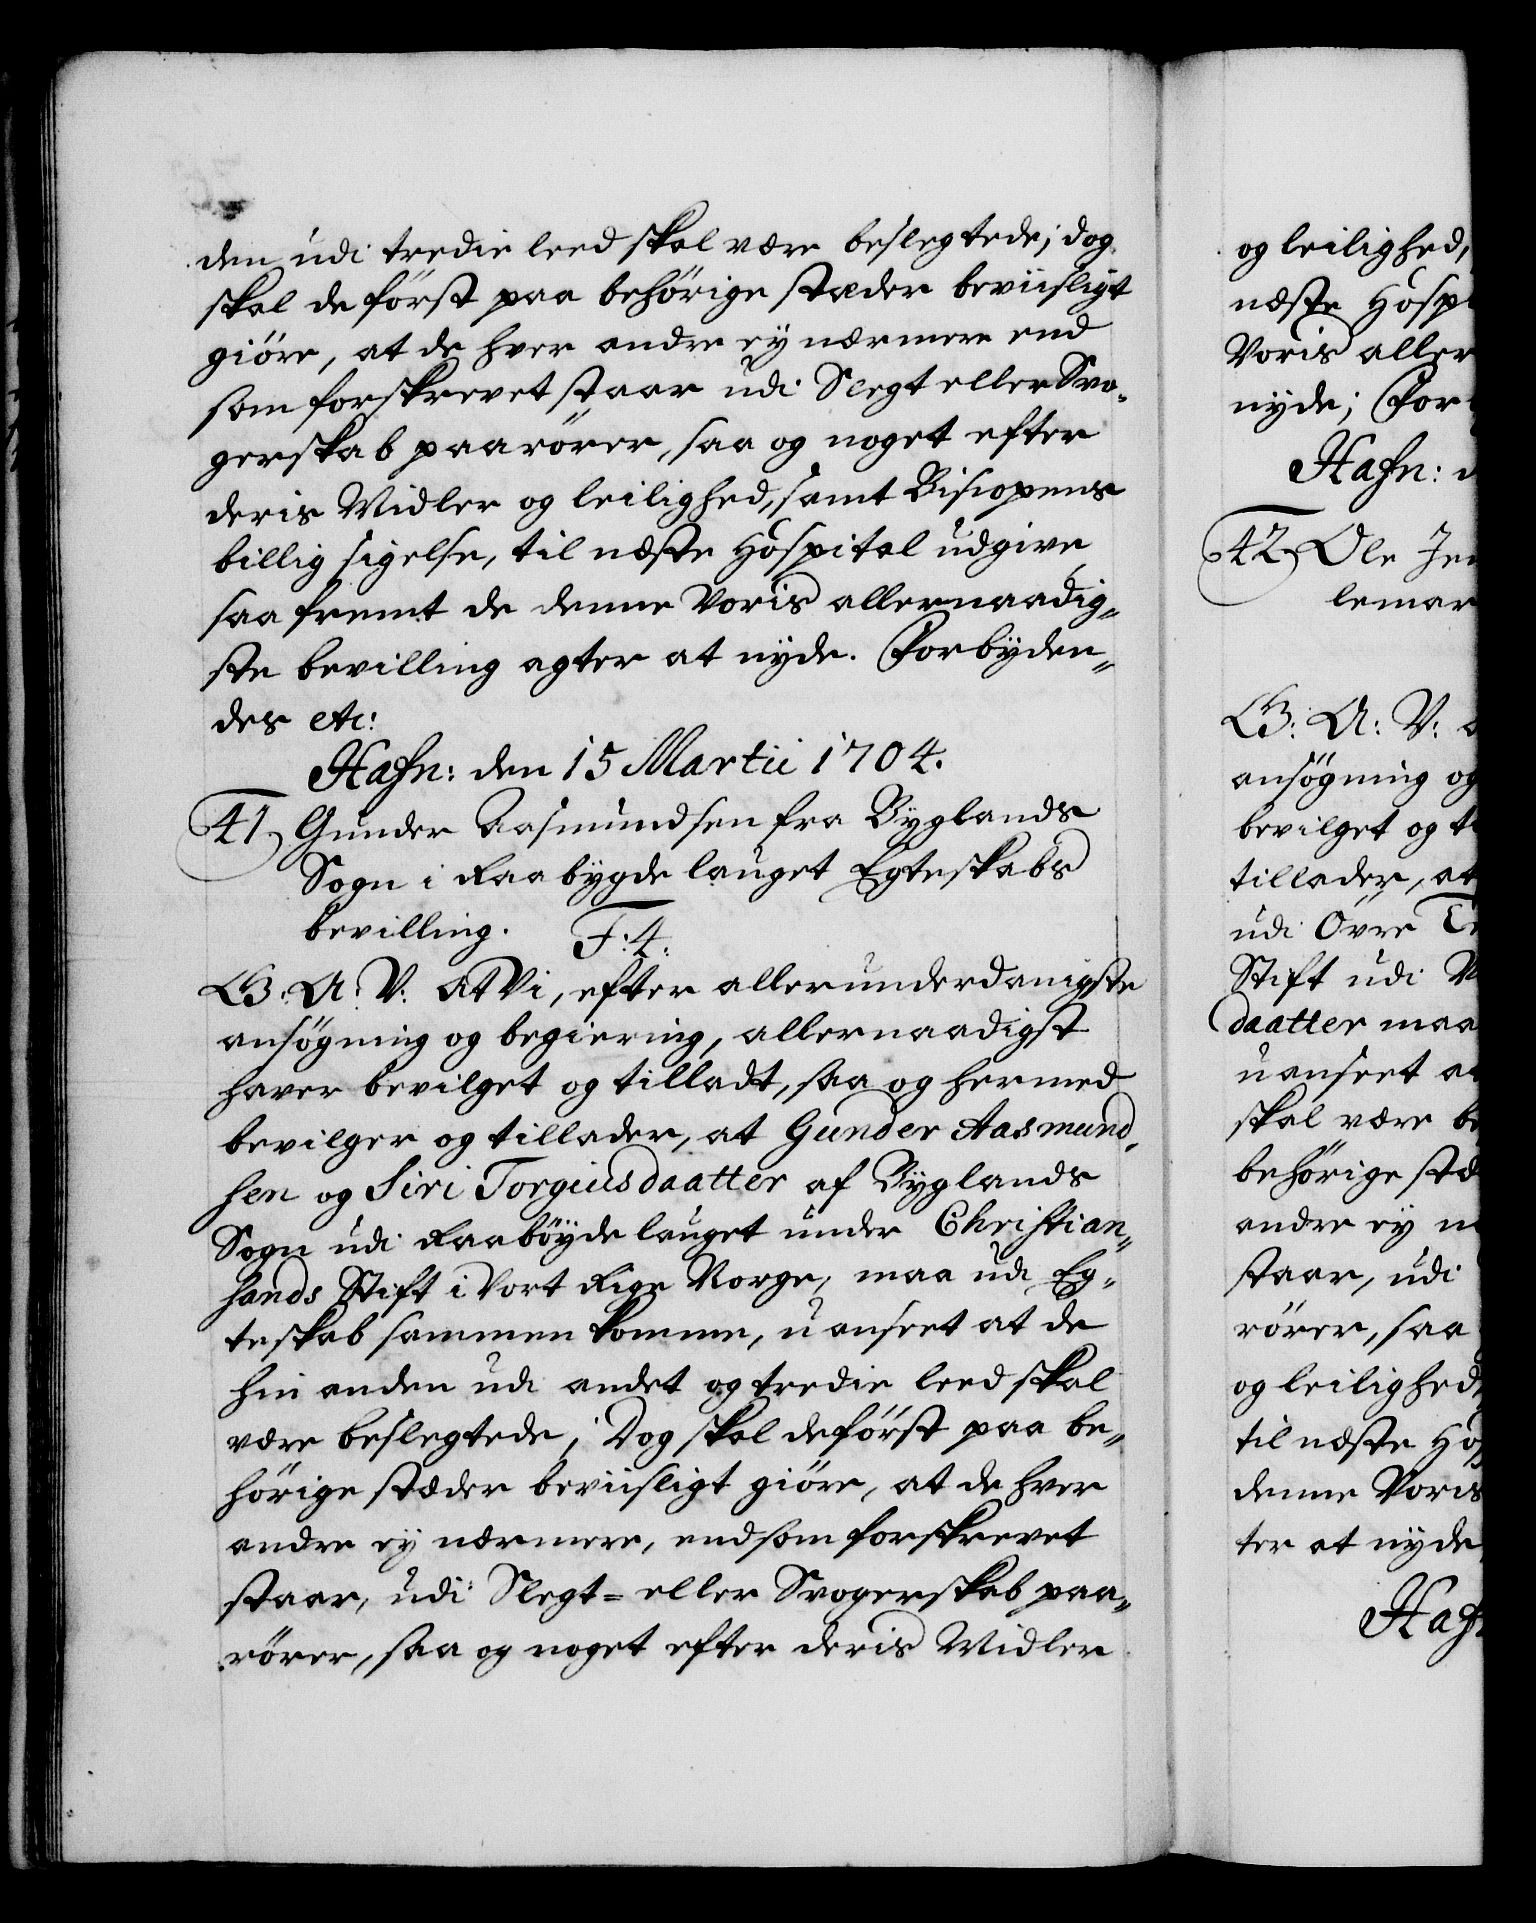 den udi tredie leed skal være beslegtede; dog
skal de först paa behörige stæder beviisligt
giöre, at de hver andre ey nærmere end
som forskrevet staar udi Slegt eller Svo-
gerskab paarörer, saa og noget efter
deris Midler og leilighed, samt Bisiopens
billig sigelse, til næste Hospital udgive
saa fremt de denne Voris allernaadig-
ste bevilling agter at nyde. Forbyden-
des etc:
Hafn: den 15 Martii 1704.
41. Gunder Aasmundsen fra Byglands
Sogn i Raabygde lauget Egteskabs
bevilling. F: 4.
G: A: V: At Vi, efter allerunderdanigste
ansögning og begiering, allernaadigst
haver bevilget og tilladt, saa og hermed
bevilger og tillader, at Gunder Aasmund-
sen og Siri Torgiusdaatter af Byglands
Sogn udi Raaböyde lauget under Christian-
sands Stift i Vort Rige Norge, maa udi Eg-
teskab sammen komme, uanseet at de
hin anden udi andet og tredie leed skal
være beslegtede; Dog skal de först paa be-
hörige stæder beviisligt giöre, at de hver
andre ey nærmere, end som forskrevet
staar, udi Slegt- eller Svogerskab paa-
rörer, saa og noget efter deris Midler
og leilighed,
næste Hospi
Voris aller
nyde; For
Hafn: d
42. Ole Jen
lemar
G: A: V: a
ansögning og
bevilget og ti
tillader, at
udi Övre Te
Stift udi V
daatter maa
uanseet at
skal være be
behörige stæ
andre ey n
staar, udi
rörer, saa
og leilighed,
til næste Hos
denne Voris
ter at nyde
Haf